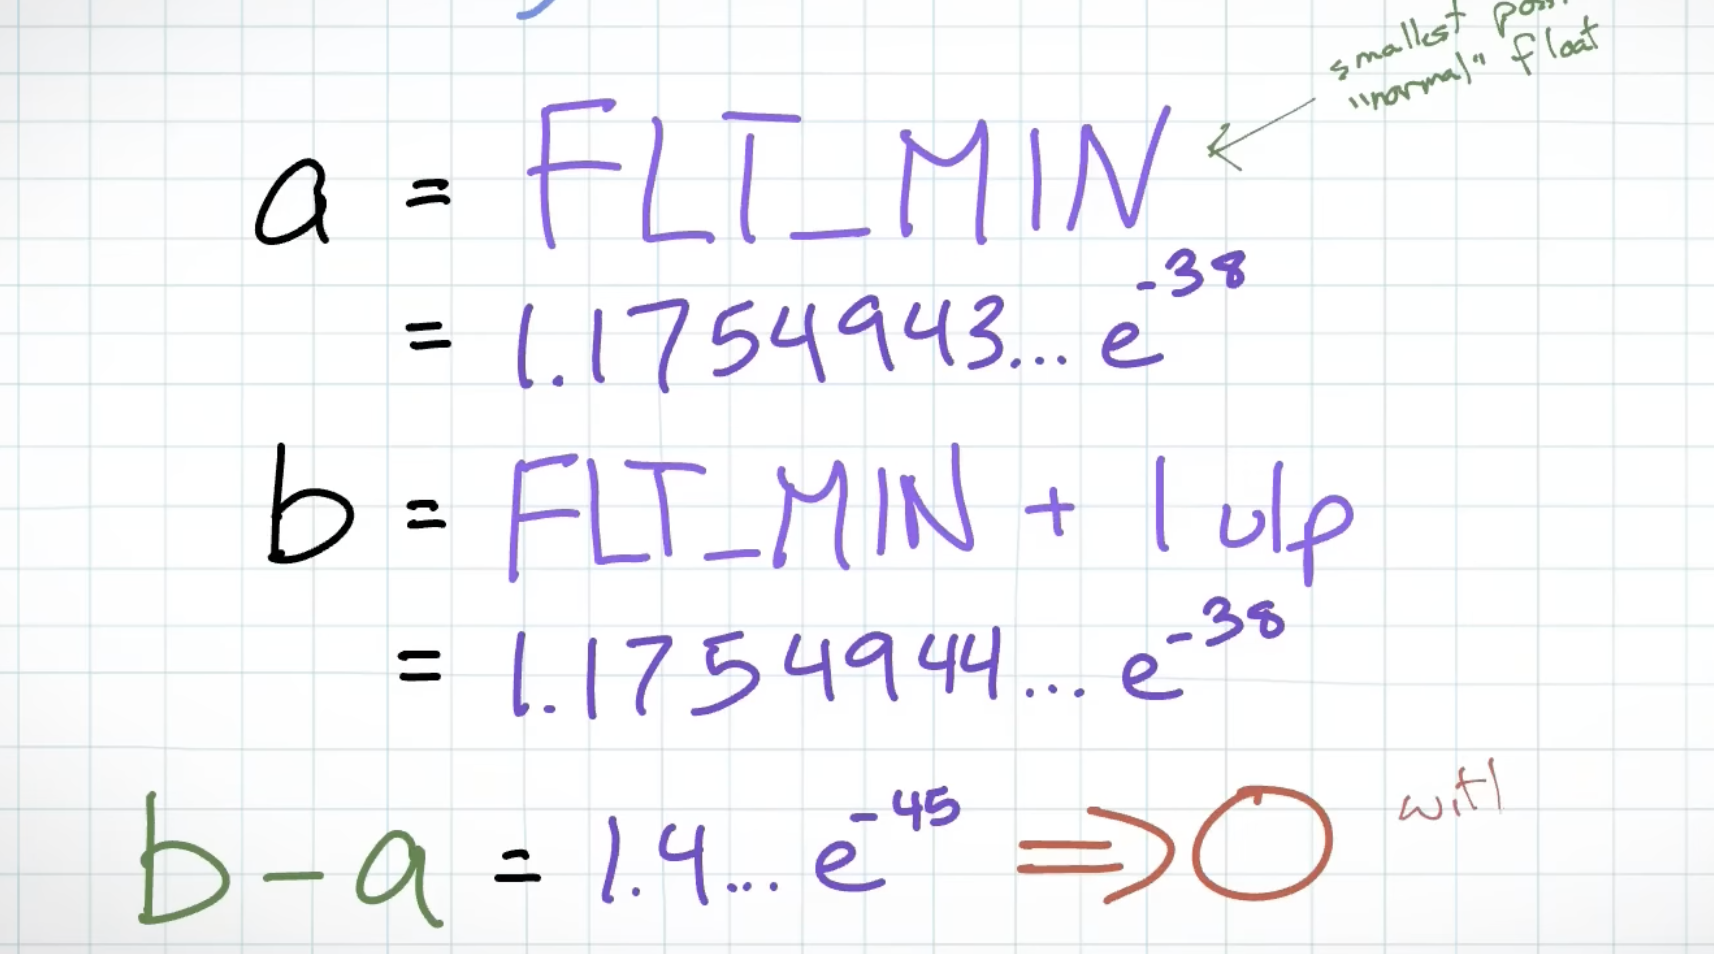 smallest
"normal" float
a = FLT_MIN
= 1.1754943... e^-38
b = FLT_MIN + 1 ulp
= 1.1754944... e^-38
b - a = 1.4... e^-45 ⇒ 0